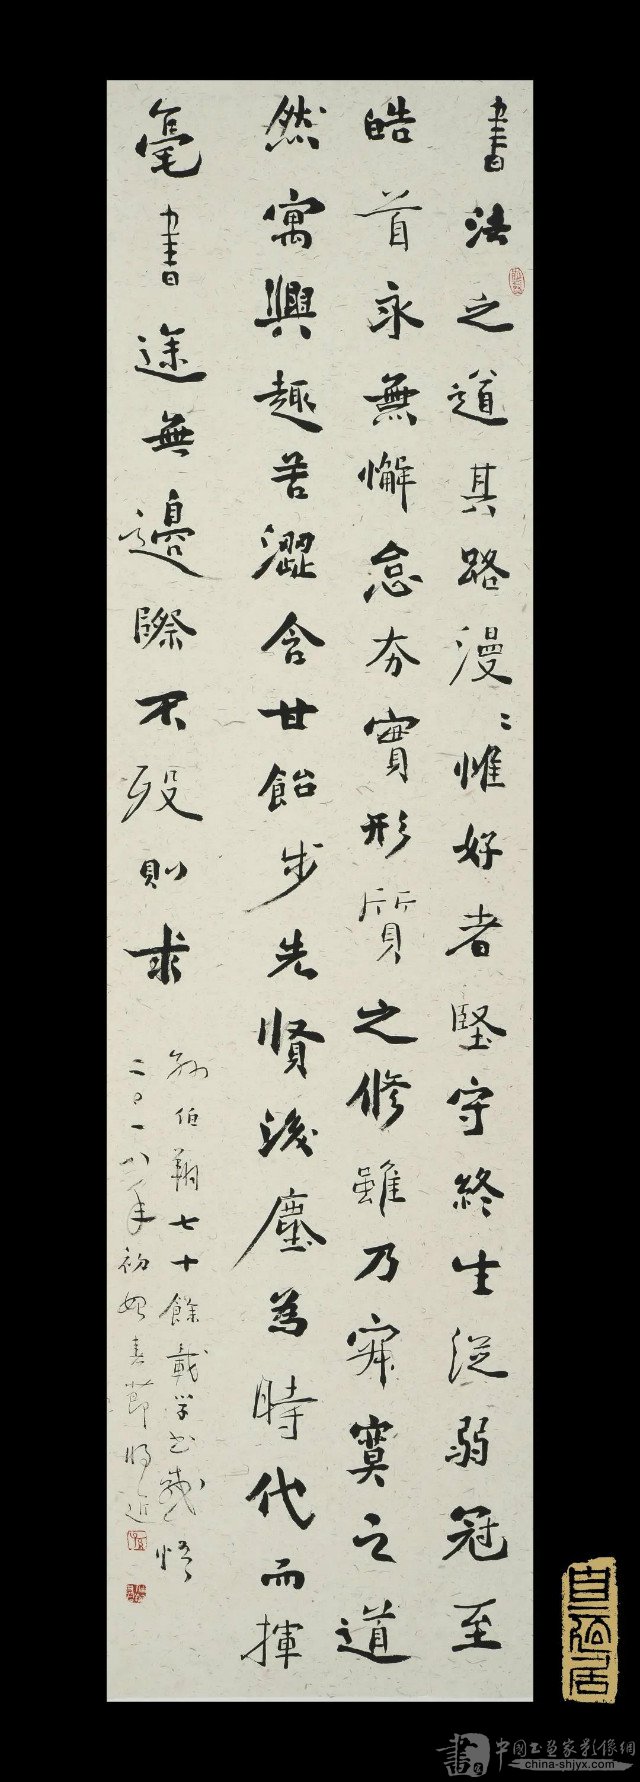 書法之道其路漫〻惟好者堅守終生從弱冠至
皓首永無懈怠夯實形質之修雖乃寂寞之道
然寓興趣苦澀含甘飴步先賢後塵為時代而揮
毫書途無邊際不歿則求
孫伯翔七十餘載学书感悟
二〇一八年初始春節將近
書
中國书画家影像網
china-shjyx.com